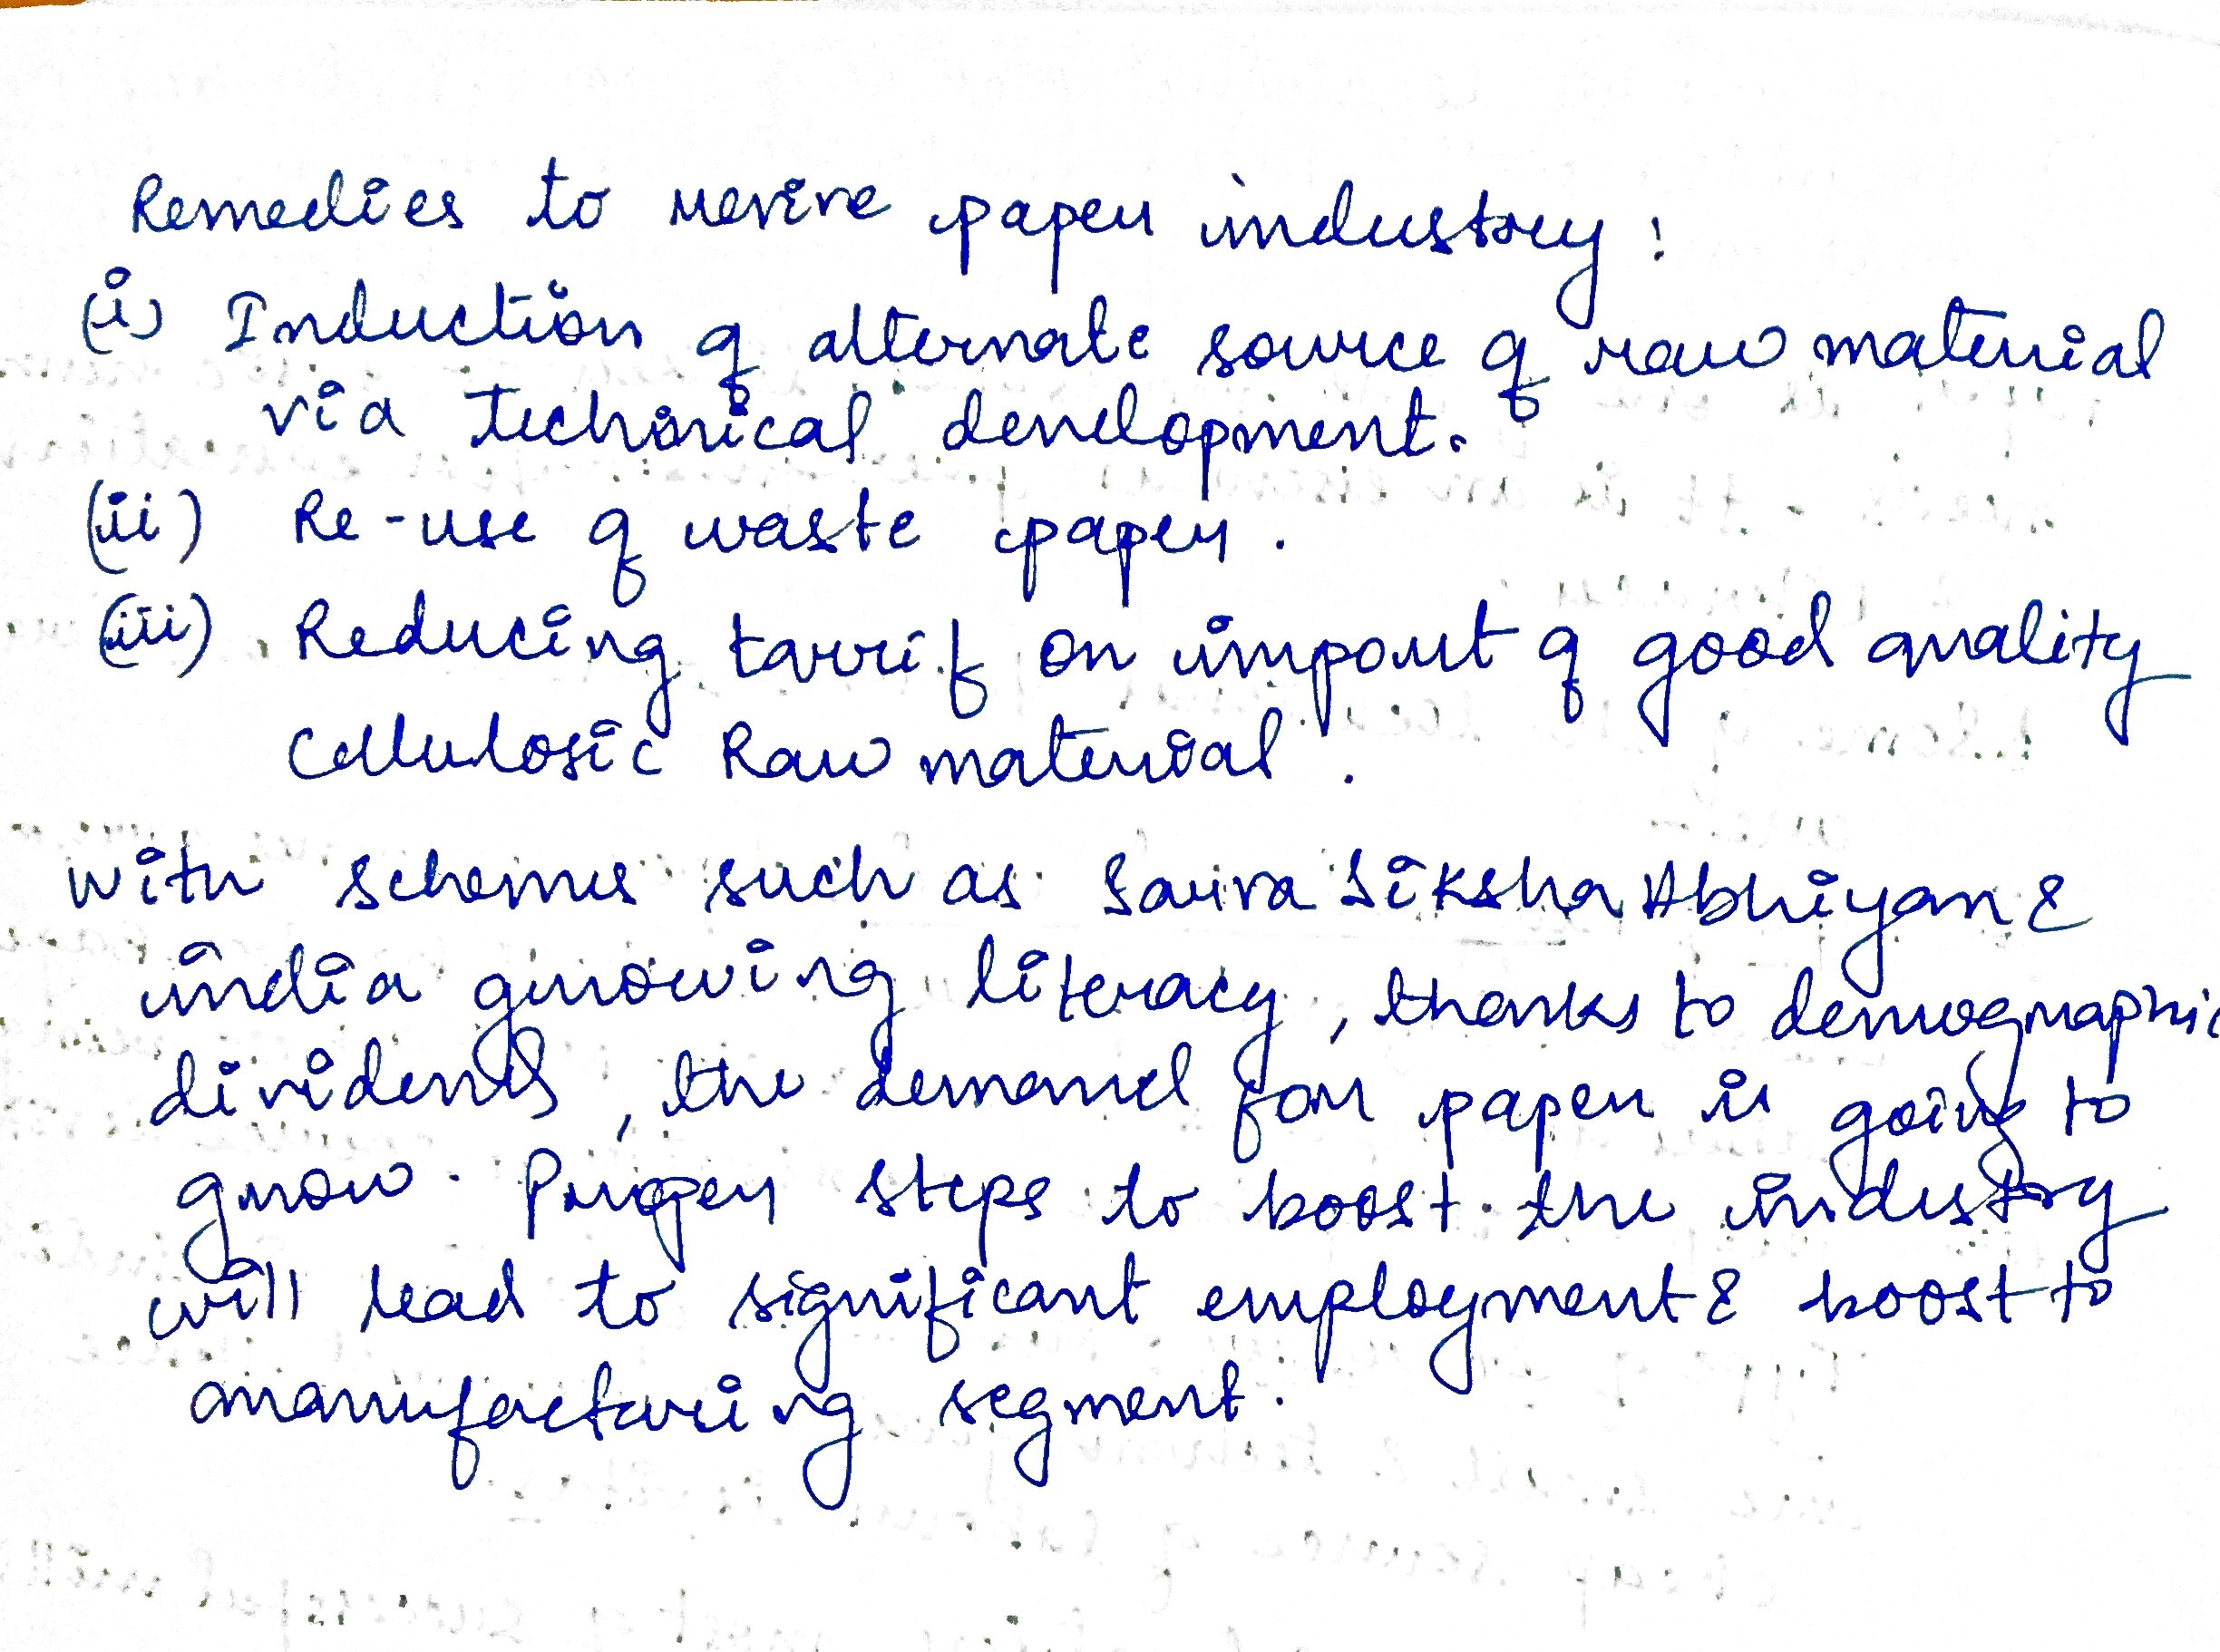 Remedies to revive paper industry :
(i) Induction of alternate source of raw material
via technical development.
(ii) Re-use of waste paper.
(iii) Reducing tarrif on import of good quality
Cellulosic Raw material.
with schemes such as Sarva Siksha Abhiyan &
india growing literacy, thanks to demographic
dividends, the demand for paper is going to
grow. Proper steps to boost the industry
will lead to significant employment & boost to
manufacturing segment.